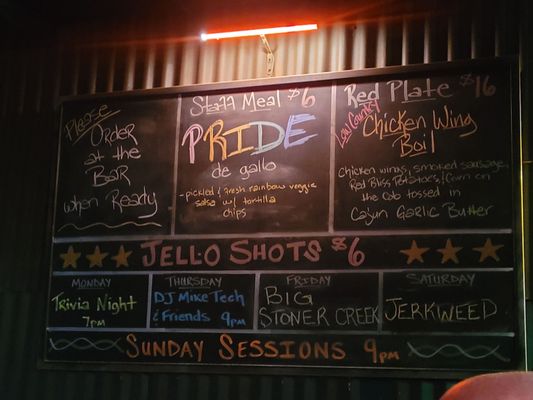 Please
Order
at the
Bar
when Ready
Staff Meal $6
PRIDE
de gallo
-pickled & fresh rainbow veggie
salsa w/ tortilla
chips
Red Plate $16
Low Country
Chicken Wing
Boil
Chicken wings, smoked sausage,
Red Bliss Potatoes, & Corn on
the Cob tossed in
Cajun Garlic Butter
JELLO SHOTS $6
MONDAY
Trivia Night
7pm
THURSDAY
DJ Mike Tech
& Friends 9pm
FRIDAY
BIG
STONER CREEK
SATURDAY
JERKWEED
SUNDAY SESSIONS 9pm